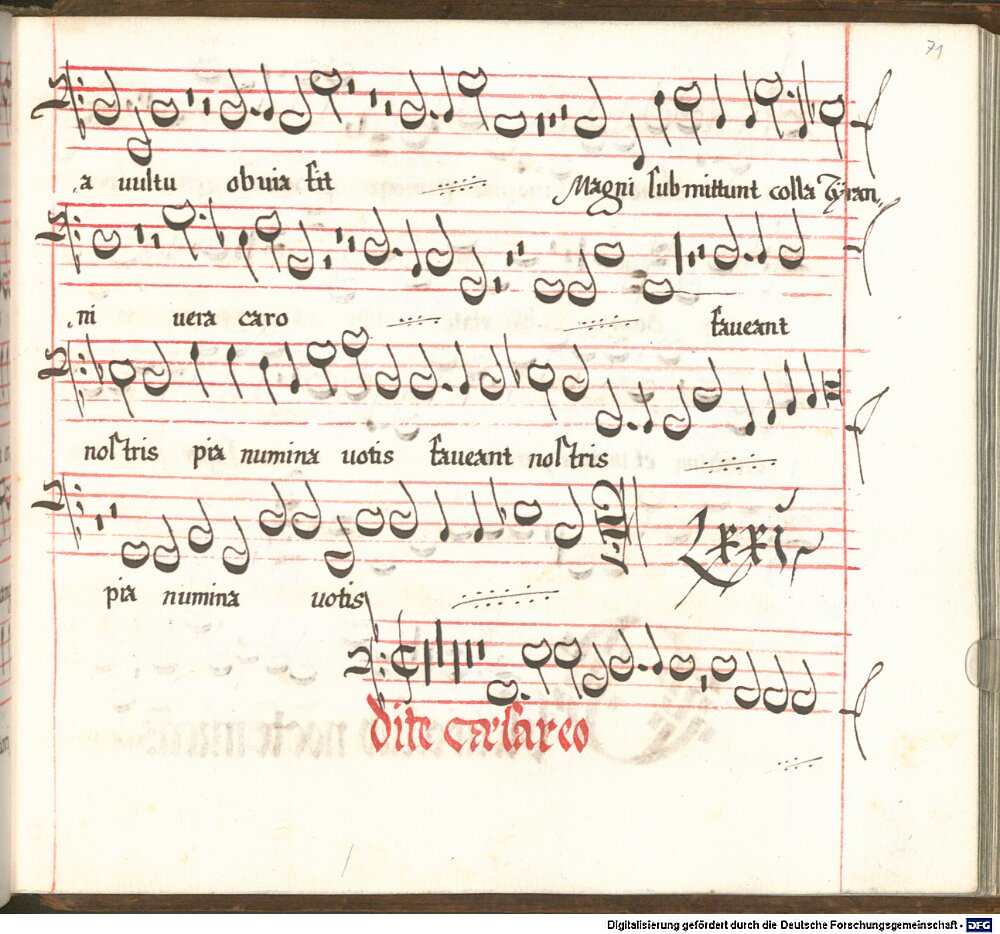 71
a vultu obuia sit Magni submittunt colla Tyran,
ni uera caro faueant
nostris pia numina uotis faueant nostris
Lxxi
pia numina uotis
dite cæsareo
Digitalisierung gefördert durch die Deutsche Forschungsgemeinschaft - DFG